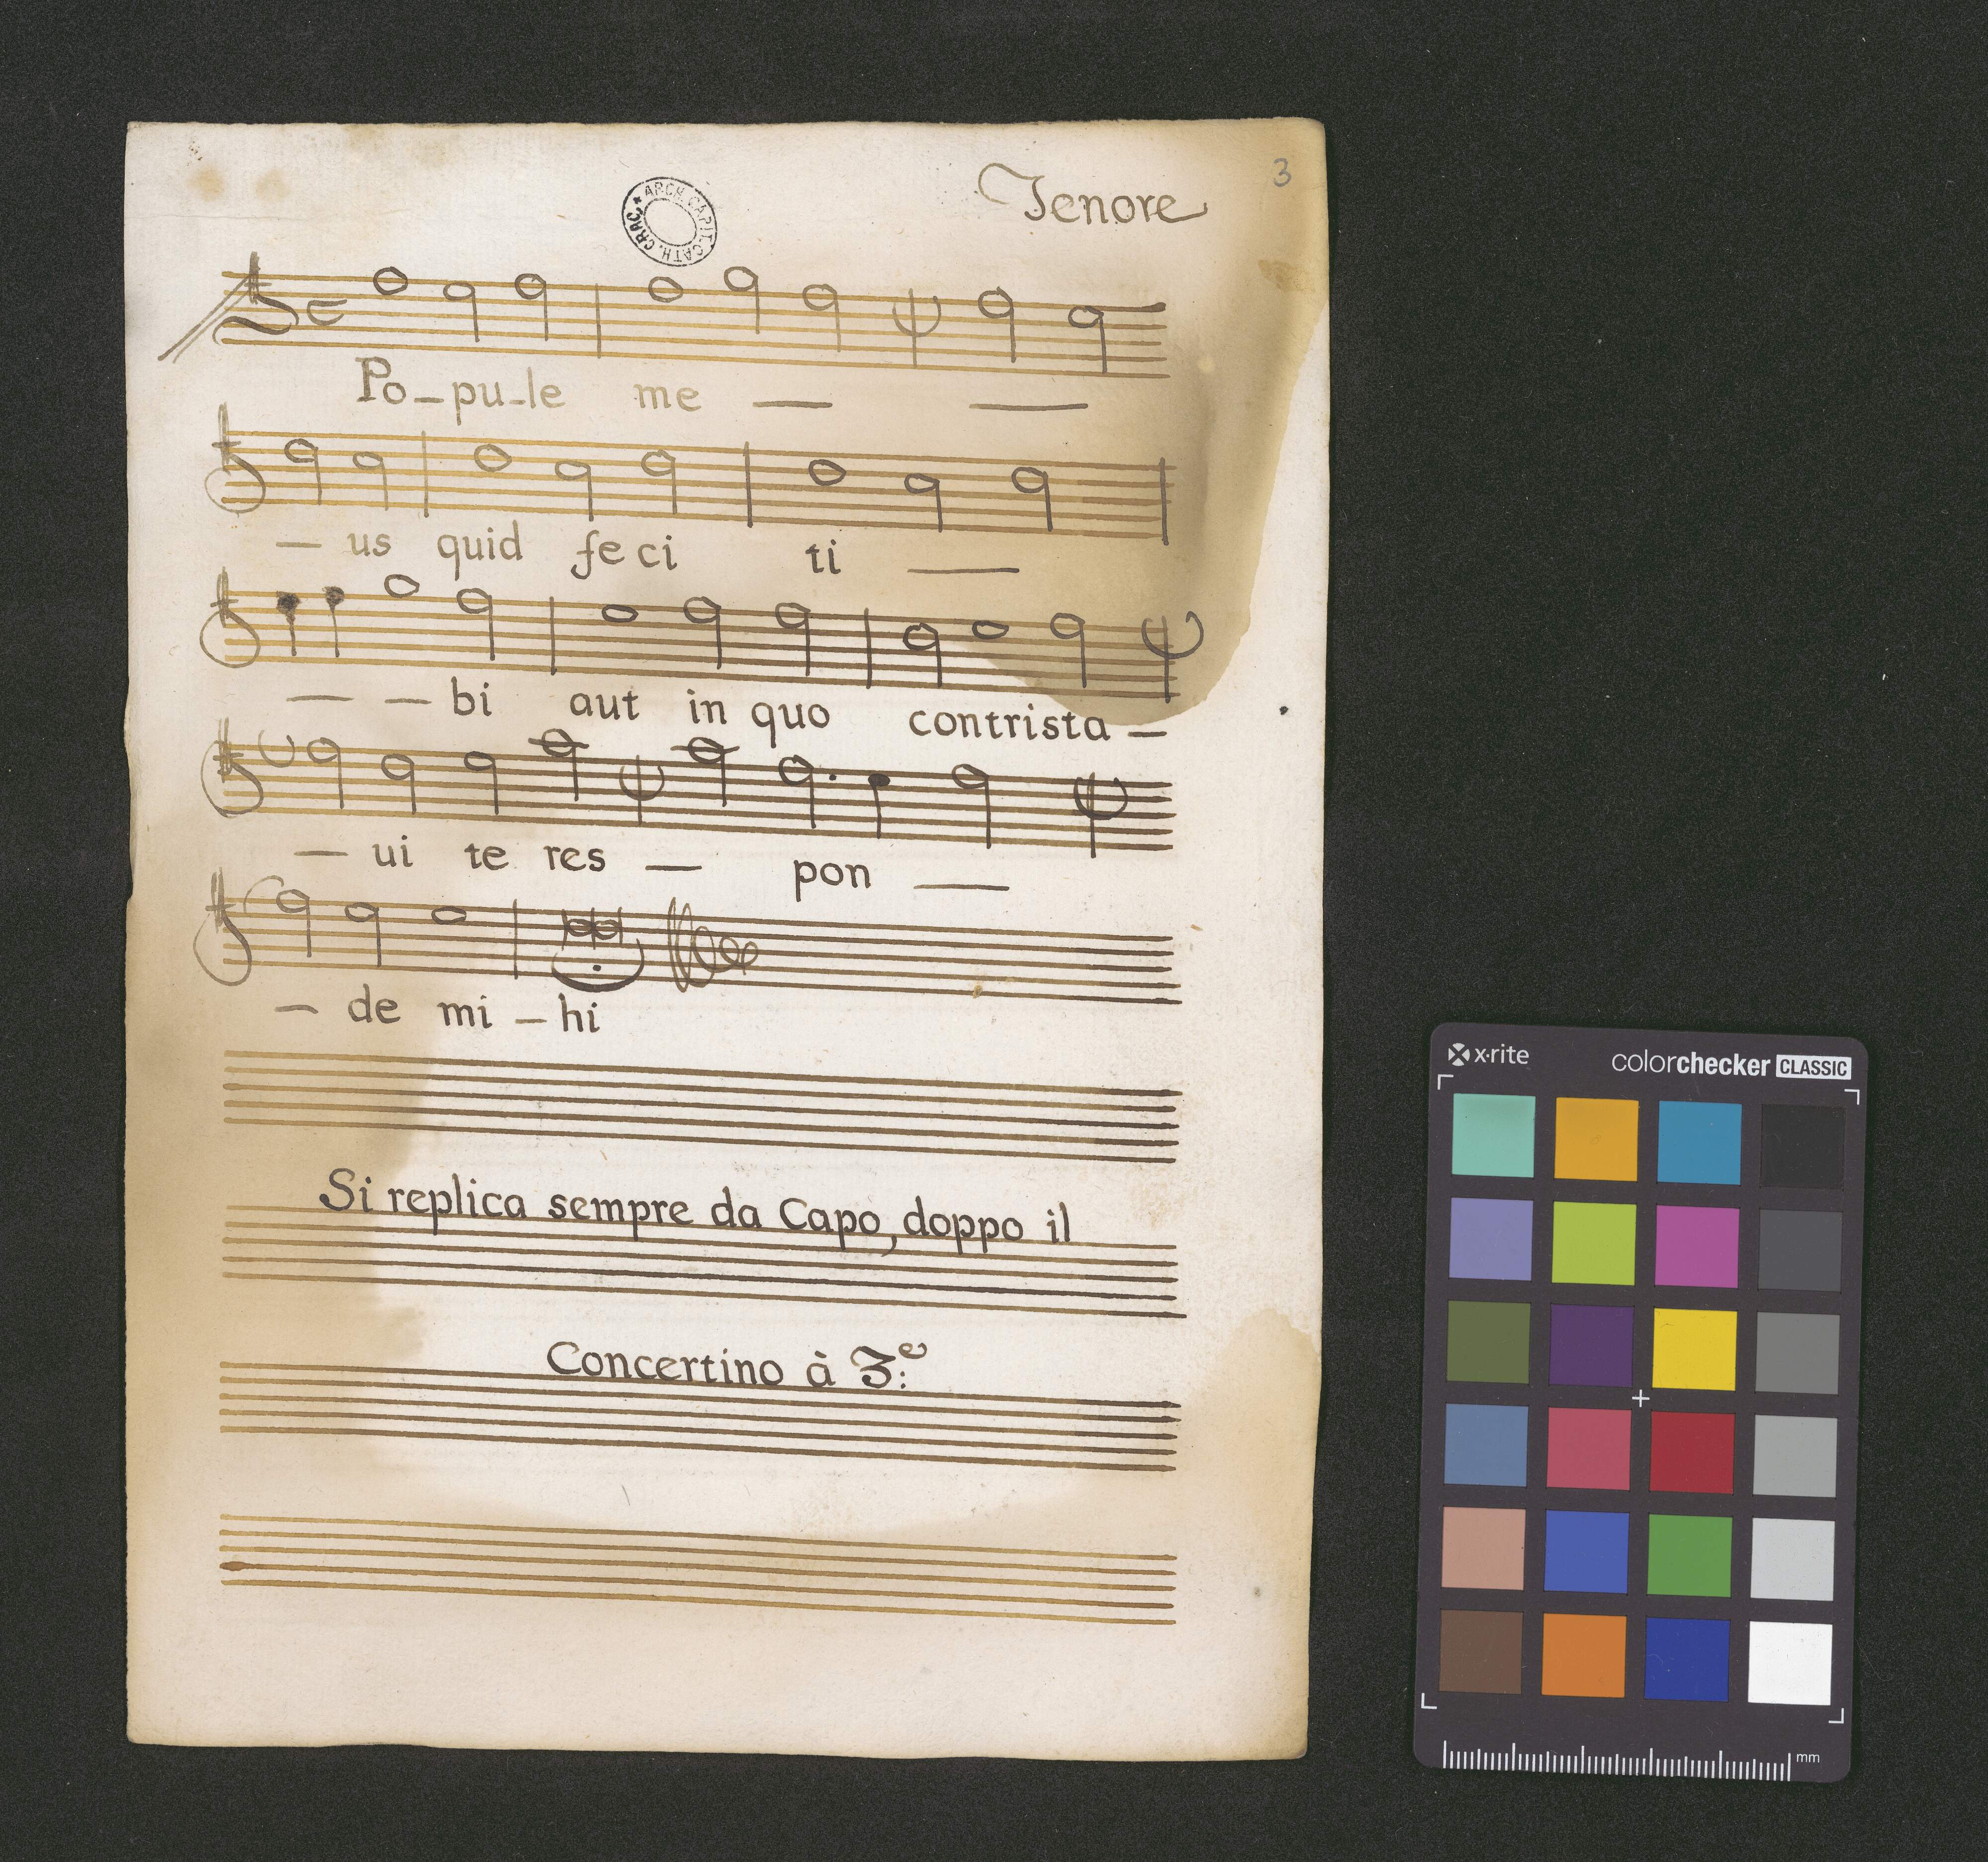 3
Tenore
ARCH. CAPIT. CATH. CRAC. *
Po-pu-le me — —
— us quid feci ti —
— — bi aut in quo contrista —
— ui te res — pon —
— de mi - hi
Si replica sempre da Capo, doppo il
Concertino à 3.e
x-rite
colorchecker CLASSIC
mm